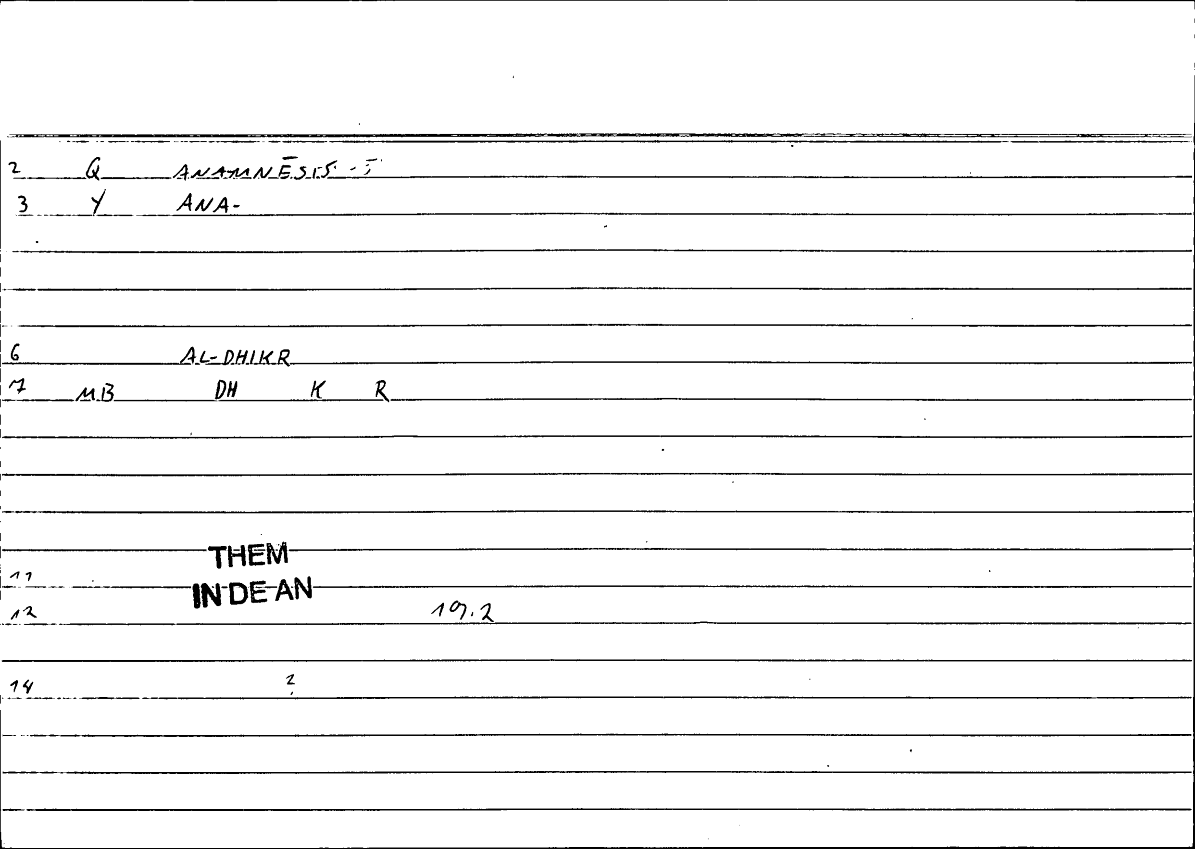 2 Q ANAMNĒSIS
3 Y ANA-
6 AL-DHIKR
7 MB DH K R
THEM
11
IN DE AN
12 19.2
14 2